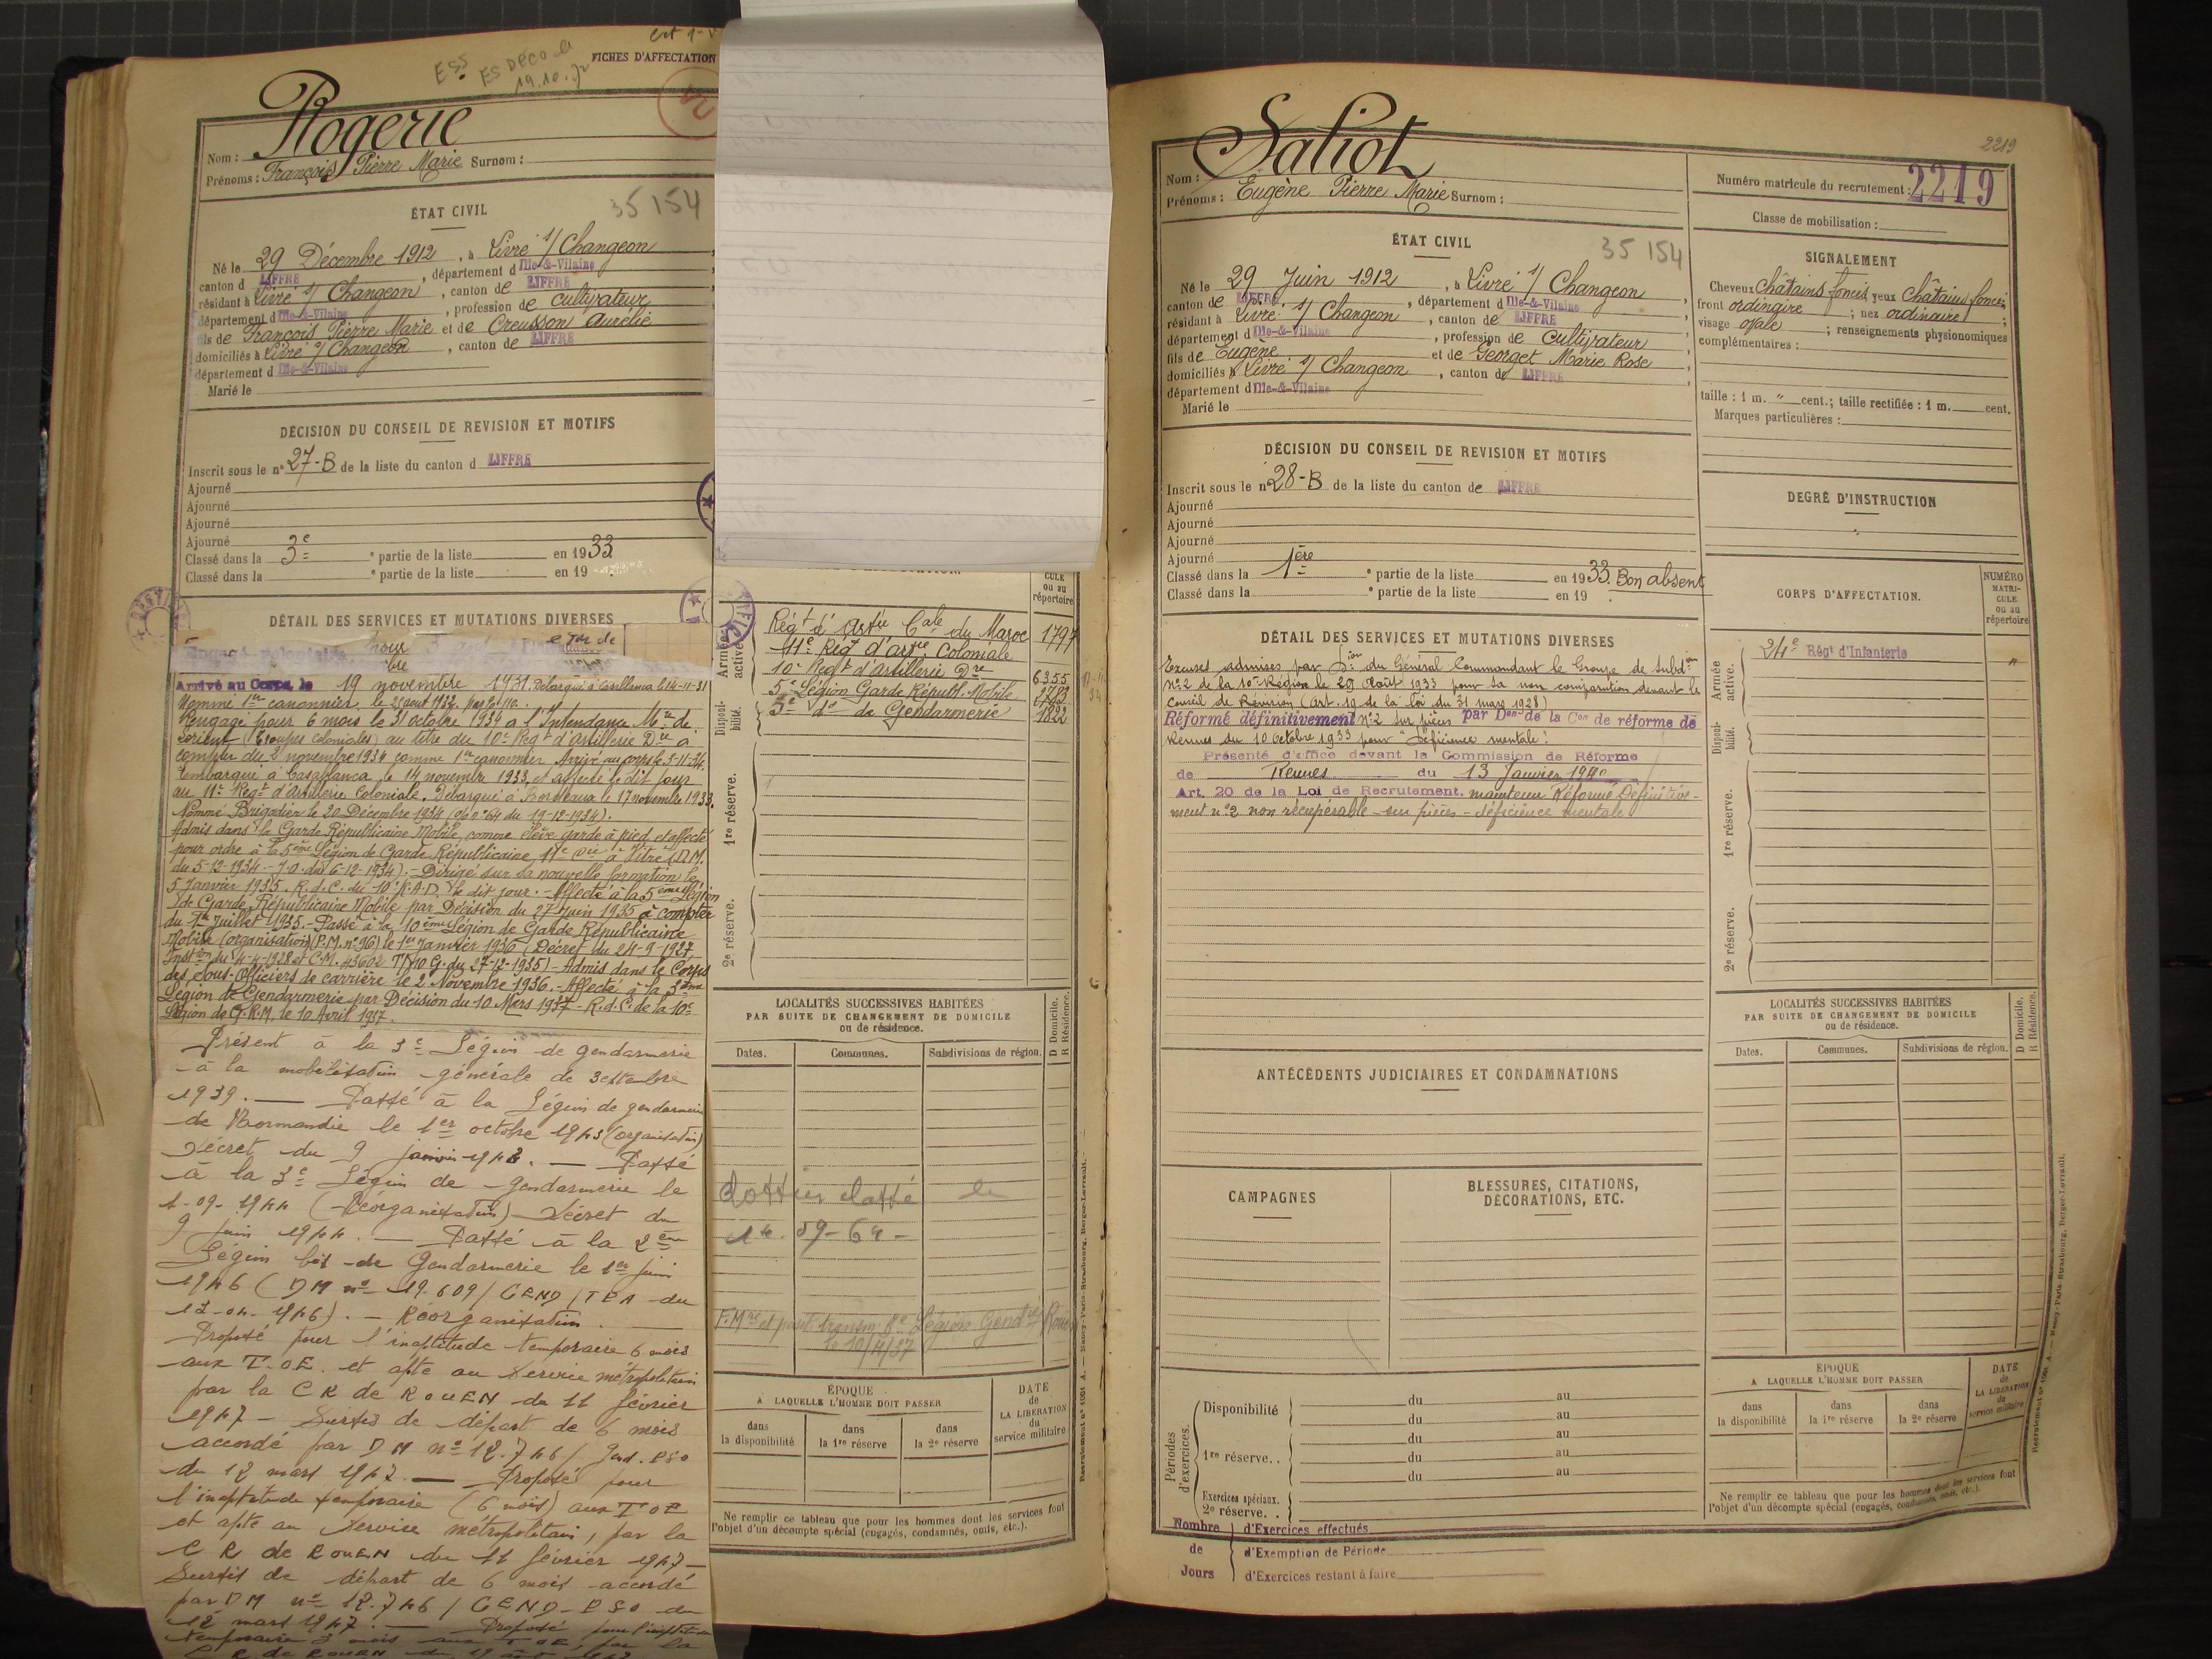 FICHES D'AFFECTATION
Ess
19.10.
Nom : Rogerie
Prénoms : François Pierre Marie Surnom :
ÉTAT CIVIL
35 154
Né le 29 Décembre 1912, à Livré s/ Changeon
canton d LIFFRE, département d Ille-&-Vilaine
résidant à Livré s/ Changeon, canton de LIFFRE
département d Ille-&-Vilaine, profession de cultivateur
fils de François Pierre Marie et de Creusson Aurélie
domiciliés à Livré s/ Changeon, canton de LIFFRE
département d Ille-&-Vilaine
Marié le
DÉCISION DU CONSEIL DE REVISION ET MOTIFS
Inscrit sous le n° 27-B de la liste du canton d LIFFRE
Ajourné
Ajourné
Ajourné
Ajourné
Classé dans la 3e e partie de la liste en 1933
Classé dans la e partie de la liste en 19
DÉTAIL DES SERVICES ET MUTATIONS DIVERSES
Arrivé au Corps le 19 novembre 1931. Débarqué à Casablanca le 14-11-31
Nommé 1er canonnier le 2 août 1932.
Rengagé pour 6 mois le 31 octobre 1934 à l'Intendance Mre de
Lorient (Troupes Coloniales) au titre du 10e Régt d'Artillerie Dre à
compter du 2 novembre 1934 comme 1er canonnier Arrivé au corps le 5-11-34.
Embarqué à Casablanca le 14 novembre 1933, et affecté le dit jour
au 11e Régt d'Artillerie Coloniale. Débarqué à Bordeaux le 17 novembre 1933.
Nommé Brigadier le 20 Décembre 1934 (O.C. n° 64 du 19-12-1934).
Admis dans la Garde Républicaine Mobile, comme élève garde à pied et affecté
pour ordre à la 5ème Légion de Garde Républicaine 11e Cie à Vitré (D.M.
du 5-12-1934 - J.O. du 6-12-1934). - Dirigé sur sa nouvelle formation le
5 Janvier 1935. R.d.C. du 10e R.A.D. le dit jour. - Affecté à la 5ème Légion
de Garde Républicaine Mobile par Décision du 27 Juin 1935 à compter
du 1er Juillet 1935. - Passé à la 10ème Légion de Garde Républicaine
Mobile (organisation) (P.M. n° 96) le 1er Janvier 1936 (Décret du 24-9-1927,
Instion du 4-4-1928 et C.M. 43602 T/10 G. du 27-12-1935) - Admis dans le Corps
des Sous-Officiers de carrière le 2 Novembre 1936. - Affecté à la 3ème
Légion de Gendarmerie par Décision du 10 Mars 1937 - R.d.C. de la 10e
Légion de G.R.M. le 10 Avril 1937.
Présent à la 3e Légion de gendarmerie
à la mobilisation générale de 3 septembre
1939. — Passé à la Légion de gendarmerie
de Normandie le 1er octobre 1943 (organisation)
Décret du 9 janvier 1943. — Passé
à la 3e Légion de gendarmerie le
1-09-1944 (Réorganisation) Décret du
9 juin 1944. — Passé à la 2ème
Légion bis de Gendarmerie le 1er juin
1946 (DM n° 19.609 / GEND / TEA du
12-04-1946). — Réorganisation. —
Proposé pour l'inaptitude temporaire 6 mois
aux T.O.E. et apte au service métropolitain
par la CR de ROUEN du 11 février
1947 - Sursis de départ de 6 mois
accordé par DM n° 12.746 / Gend. PSO
du 12 mars 1947. — Proposé pour
l'inaptitude temporaire (6 mois) aux TOE
et apte au service métropolitain, par la
CR de ROUEN du 11 février 1947 —
Sursis de départ de 6 mois accordé
par DM n° 12.746 / GEND - PSO du
12 mars 1947. — Proposé pour l'inaptitude
temporaire 3 mois aux TOE, par la
CR de ROUEN du 19 août
CULE
ou au
répertoire
Armée active.
Régt d'Artie Cale du Maroc 1797
11e Régt d'Artie Coloniale
10e Régt d'Artillerie Dre 6355
5e Légion Garde Républ. Mobile 2783
Disponibilité.
3e do de Gendarmerie 1822
1re réserve.
2e réserve.
LOCALITÉS SUCCESSIVES HABITÉES
PAR SUITE DE CHANGEMENT DE DOMICILE
ou de résidence.
D Domicile.
R Résidence.
Dates. Communes. Subdivisions de région.
dossier classé le
14-09-64-
F. Mre et punt. transm. 3e Légion Gendrie Rouen
le 10/4/37
ÉPOQUE
A LAQUELLE L'HOMME DOIT PASSER
dans la disponibilité
dans la 1re réserve
dans la 2e réserve
DATE
de
LA LIBÉRATION
du
service militaire
Ne remplir ce tableau que pour les hommes dont les services font
l'objet d'un décompte spécial (engagés, condamnés, omis, etc.).
Recrutement n° 1001 A. — Nancy-Paris-Strasbourg, Berger-Levrault.
2219
Nom : Saliot
Prénoms : Eugène Pierre Marie Surnom :
Numéro matricule du recrutement : 2219
Classe de mobilisation :
ÉTAT CIVIL
35 154
Né le 29 Juin 1912, à Livré s/ Changeon
canton de LIFFRE, département d Ille-&-Vilaine
résidant à Livré s/ Changeon, canton de LIFFRE
département d Ille-&-Vilaine, profession de cultivateur
fils de Eugène et de Georget Marie Rose
domiciliés à Livré s/ Changeon, canton de LIFFRE
département d Ille-&-Vilaine
Marié le
SIGNALEMENT
Cheveux Châtains foncés yeux Châtains foncés
front ordinaire ; nez ordinaire ;
visage ovale ; renseignements physionomiques
complémentaires :
taille : 1 m. " cent.; taille rectifiée : 1 m. cent.
Marques particulières :
DÉCISION DU CONSEIL DE REVISION ET MOTIFS
Inscrit sous le n° 28-B de la liste du canton de LIFFRE
Ajourné
Ajourné
Ajourné
Ajourné
Classé dans la 1ère e partie de la liste en 1933. Bon absent
Classé dans la e partie de la liste en 19 .
DEGRÉ D'INSTRUCTION
DÉTAIL DES SERVICES ET MUTATIONS DIVERSES
Excuses admises par Don du Général Commandant le Groupe de Subdion
N° 2 de la 10e Région le 29 Août 1933 pour sa non comparution devant le
Conseil de Révision (art. 19 de la loi du 31 mars 1928)
Réformé définitivement n° 2 sur pièces par Don de la Con de réforme de
Rennes du 10 octobre 1933 pour "Déficience mentale".
Présenté d'office devant la Commission de Réforme
de Rennes du 13 Janvier 1940
Art. 20 de la Loi de Recrutement. maintenu Réformé Définitive-
ment n° 2 non récupérable - sur pièces - déficience mentale
CORPS D'AFFECTATION.
NUMÉRO
MATRI-
CULE
ou au
répertoire
Armée active.
24e Régt d'Infanterie "
Disponibilité.
1re réserve.
2e réserve.
ANTÉCÉDENTS JUDICIAIRES ET CONDAMNATIONS
LOCALITÉS SUCCESSIVES HABITÉES
PAR SUITE DE CHANGEMENT DE DOMICILE
ou de résidence.
D Domicile.
R Résidence.
Dates. Communes. Subdivisions de région.
CAMPAGNES
BLESSURES, CITATIONS,
DÉCORATIONS, ETC.
Périodes d'exercices.
Disponibilité du au
du au
1re réserve. . du au
du au
du au
Exercices spéciaux.
2e réserve. .
Nombre d'Exercices effectués
de d'Exemption de Période
Jours d'Exercices restant à faire
ÉPOQUE
A LAQUELLE L'HOMME DOIT PASSER
dans la disponibilité
dans la 1re réserve
dans la 2e réserve
DATE
de
LA LIBÉRATION
du
service militaire
Ne remplir ce tableau que pour les hommes dont les services font
l'objet d'un décompte spécial (engagés, condamnés, omis, etc.).
Recrutement n° 1001 A. — Nancy-Paris-Strasbourg, Berger-Levrault.